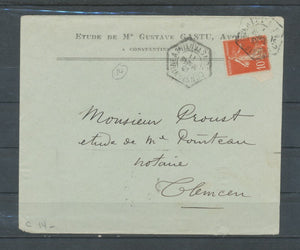 ETUDE DE Mᵉ GUSTAVE GASTU,
A CONSTANTINE
10
Monsieur Proust
etude de Me Pointeau
notaire
Tlemcen
C 14 -